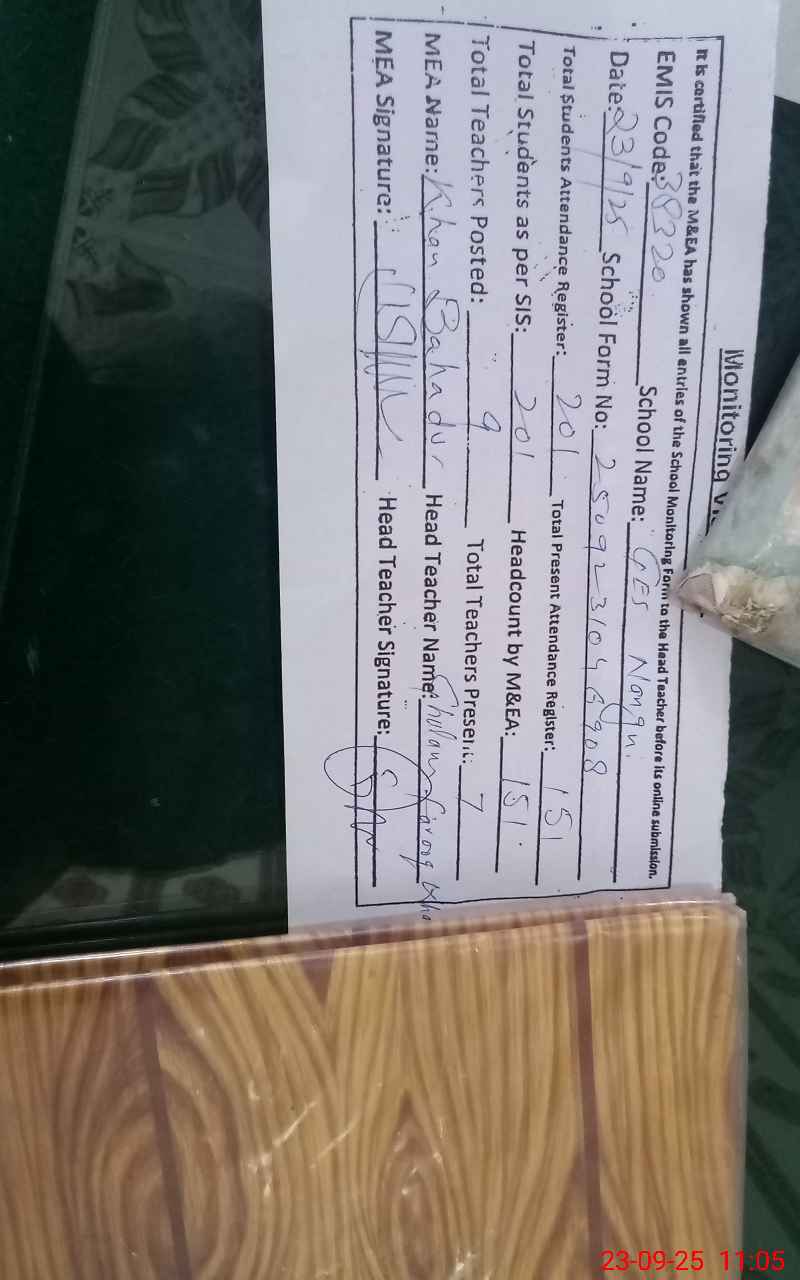 Monitoring Vi
It is certified that the M&EA has shown all entries of the School Monitoring Form to the Head Teacher before its online submission.
EMIS Code: 38320 School Name: GES Nangni
Date: 23/9/25 School Form No: 2509231046908
Total Students Attendance Register: 201 Total Present Attendance Register: 151
Total Students as per SIS: 201 Headcount by M&EA: 151
Total Teachers Posted: 9 Total Teachers Present: 7
MEA Name: Khan Bahadur Head Teacher Name: Ghulam Farooq Kha
MEA Signature: Head Teacher Signature:
23-09-25 11:05